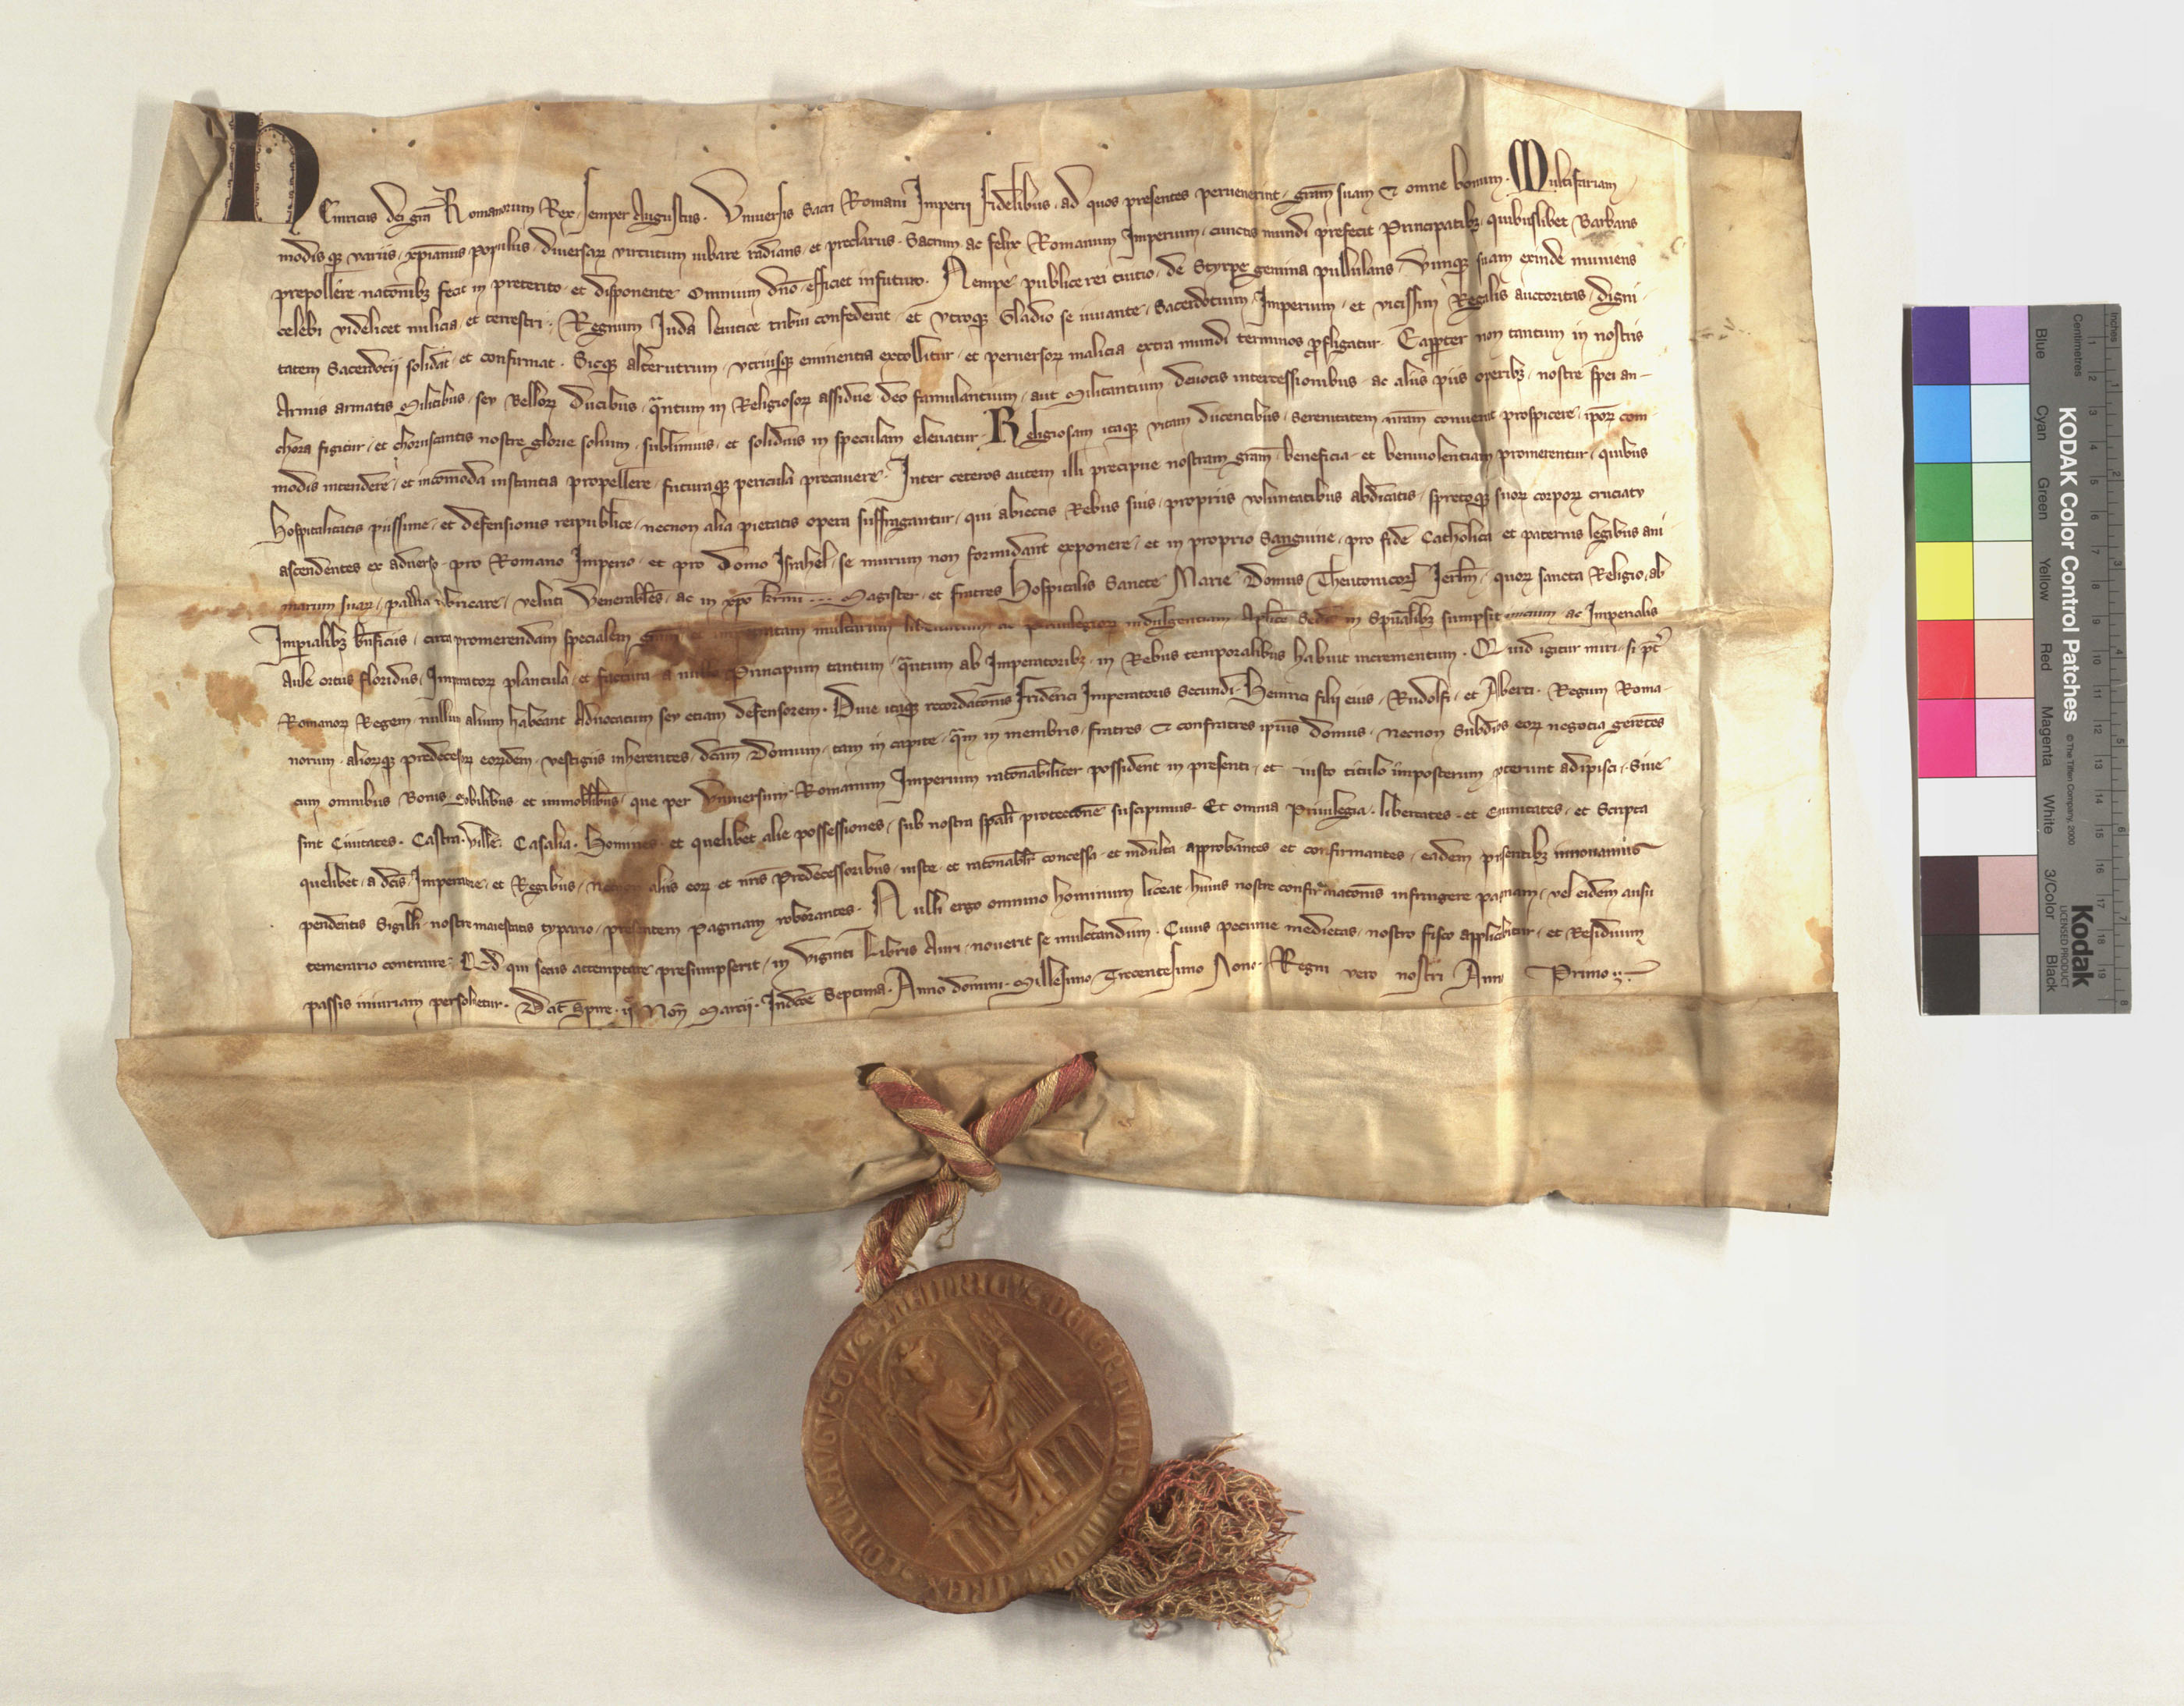 Heinricus dei gra Romanorum Rex semper Augustus. Vniuersis Sacri Romani Imperii Fidelibus, ad quos presentes peruenerint, gram suam et omne bonum. Multifariam
modisq; variis, xpianus populus, diuersar virtutum iubare radians, et preclarus, Sacrum ac felix Romanum Imperium, cunctis mundi prefecit Principatibz, quibuslibet Barbaris
prepollere natonibz fecit in preterito, et disponente Omnium dno, efficiet in futuro. Nempe publice rei tuitio, de Styrpe gemina pullulans, Vimq; suam exinde muniens
celebi videlicet milicia, et terrestri, Regnum Iuda leuitice tribui confederat, et vtroq; Gladio se iuuante, Sacerdotium Imperium, et vicissim Regalis auctoritas, digni-
tatem Sacerdocii solidat, et confirmat. Sicq; alterutrum, vtriusq; eminentia extollitur, et peruersor malicia extra mundi terminos profligatur. Eappter non tantum in nostris
Armis armatis Militibus, sey Bellor Ducibus, quntum in Religiosor assidue deo famulantium, aut Militantium deuotis intercessionibus, ac aliis piis operibz, nostre spei an-
chora figitur, et choruscantis nostre glorie solium, sublimius, et solidius in speculam eleuatur. Religiosam itaq; vitam ducentibus, serenitatem nram conuenit prospicere, ipor com
modis intendere, et incomoda instantia propellere, futuraq; pericula precauere. Inter ceteros autem illi precipue nostram gram, beneficia, et beniuolentiam promerentur, quibus
Hospitalitatis piissime, et defensionis reipublice, necnon alia pietatis opera suffragantur, qui abiectis Rebus suis, propriis voluntatibus abdicatis, spretoq; suor corpor cruciatu
ascendentes ex aduerso, pro Romano Imperio, et pro Domo Israhel, se murum non formidant exponere, et in proprio Sanguine, pro fide Catholica et paternis legibus ani
marum suar, pallia rubricare, veluti Venerabiles, ac in xpo krmi ... Magister, et fratres Hospitalis Sancte Marie Domus Theutonicor Ierlm, quor sancta Religio, ab
Imperialibz bnficiis, circa promerendam specialem gram, et impetratam multarum libertatum, ac Priuilegior indulgentiam Aplice Sedis in Spualibz sumpsit inicium ac Imperialis
Aule ortus floridus, Imperator plantula, et factura a nullo Principum tantum, quntum ab Imperatoribz, in Rebus temporalibus habuit incrementum. Quid igitur miri, si pter
Romanor Regem, nullum alium habeant Aduocatum sey etiam defensorem. Diue itaq; recordatonis Friderici Imperatoris Secundi, Heinrici filii eius, Rudolfi, et Alberti, Regum Roma-
norum, aliorq; predecessor eorundem, vestigiis inherentes, dcam Domum, tam in capite, qam in membris, fratres et confratres ipius domus, necnon Subditos eor negocia gerentes
cum omnibus Bonis Mobilibus et immobilibus, que per Vniuersum Romanum Imperium ratonabiliter possident in presenti, et iusto titulo imposterum poterunt adipisci, Siue
sint Ciuitates, Castra, Ville, Casalia, Homines, et quelibet alie possessiones, sub nostra spali protectione suscipimus. Et omnia Priuilegia, libertates, et Emunitates, et Scripta
quelibet, a dcis Imperatore, et Regibus, necnon aliis eor et nris Predecessoribus, iuste, et ratonabilr concessa, et indulta approbantes et confirmantes, eadem presentibz innouamus
pendentis Sigilli nostre maiestatis typario, presentem paginam roborantes. Nulli ergo omnino hominum liceat, huius nostre confirmatonis infringere paginam, vel eidem ausu
temerario contraire. Qd qui secus attemptare presumpserit, in Viginti Libris Auri, nouerit se mulctandum. Cuius pecunie medietas, nostro fisco applicabitur, et Residuum
passis iniuriam persoluetur. Dat Spire. ij Non Marcij. Indictoe Septima. Anno domini Millesimo Trecentesimo Nono. Regni vero nostri Anno Primo
HEINRICVS DEI GRATIA ROMANORVM REX SEMPER AVGVSTVS
KODAK Color Control Patches
© The Tiffen Company, 2000
Kodak
LICENSED PRODUCT
Inches
1 2 3 4 5 6 7 8
Centimetres
1 2 3 4 5 6 7 8 9 10 11 12 13 14 15 16 17 18 19
Blue Cyan Green Yellow Red Magenta White 3/Color Black